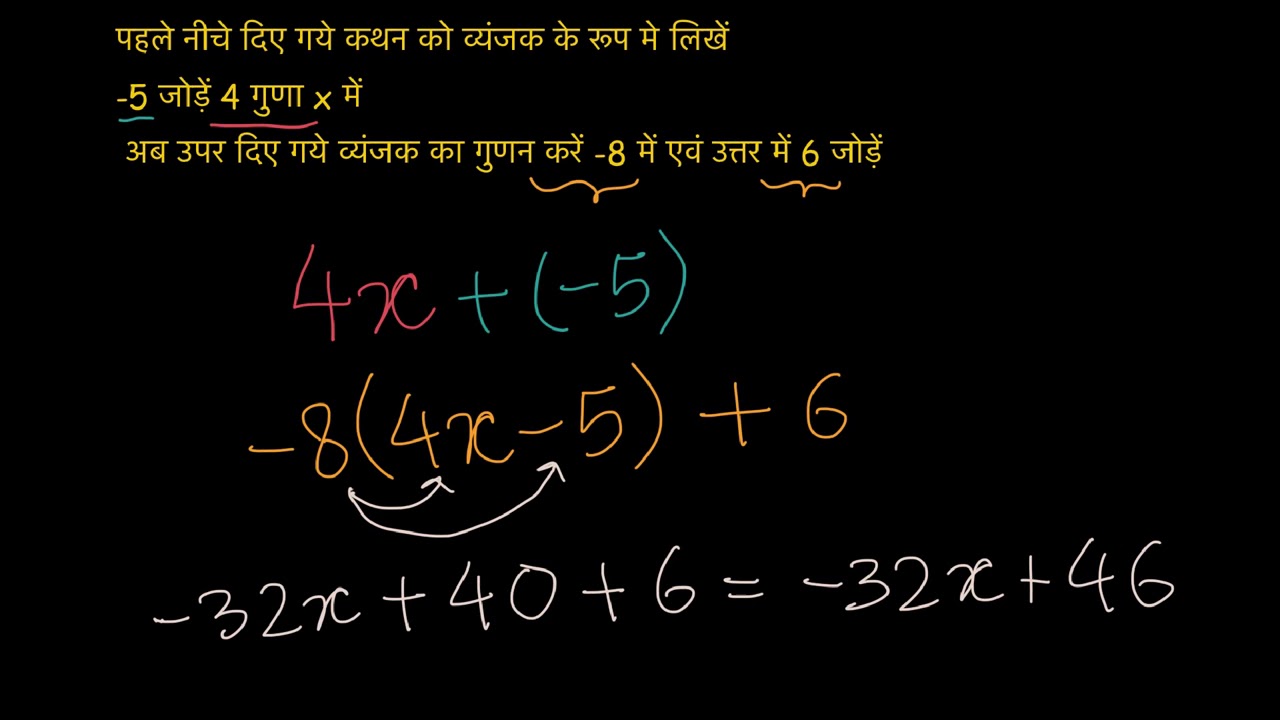 पहले नीचे दिए गये कथन को व्यंजक के रूप मे लिखें
-5 जोड़ें 4 गुणा x में
अब उपर दिए गये व्यंजक का गुणन करें -8 में एवं उत्तर में 6 जोड़ें
4x + (-5)
-8(4x-5) + 6
-32x + 40 + 6 = -32x + 46